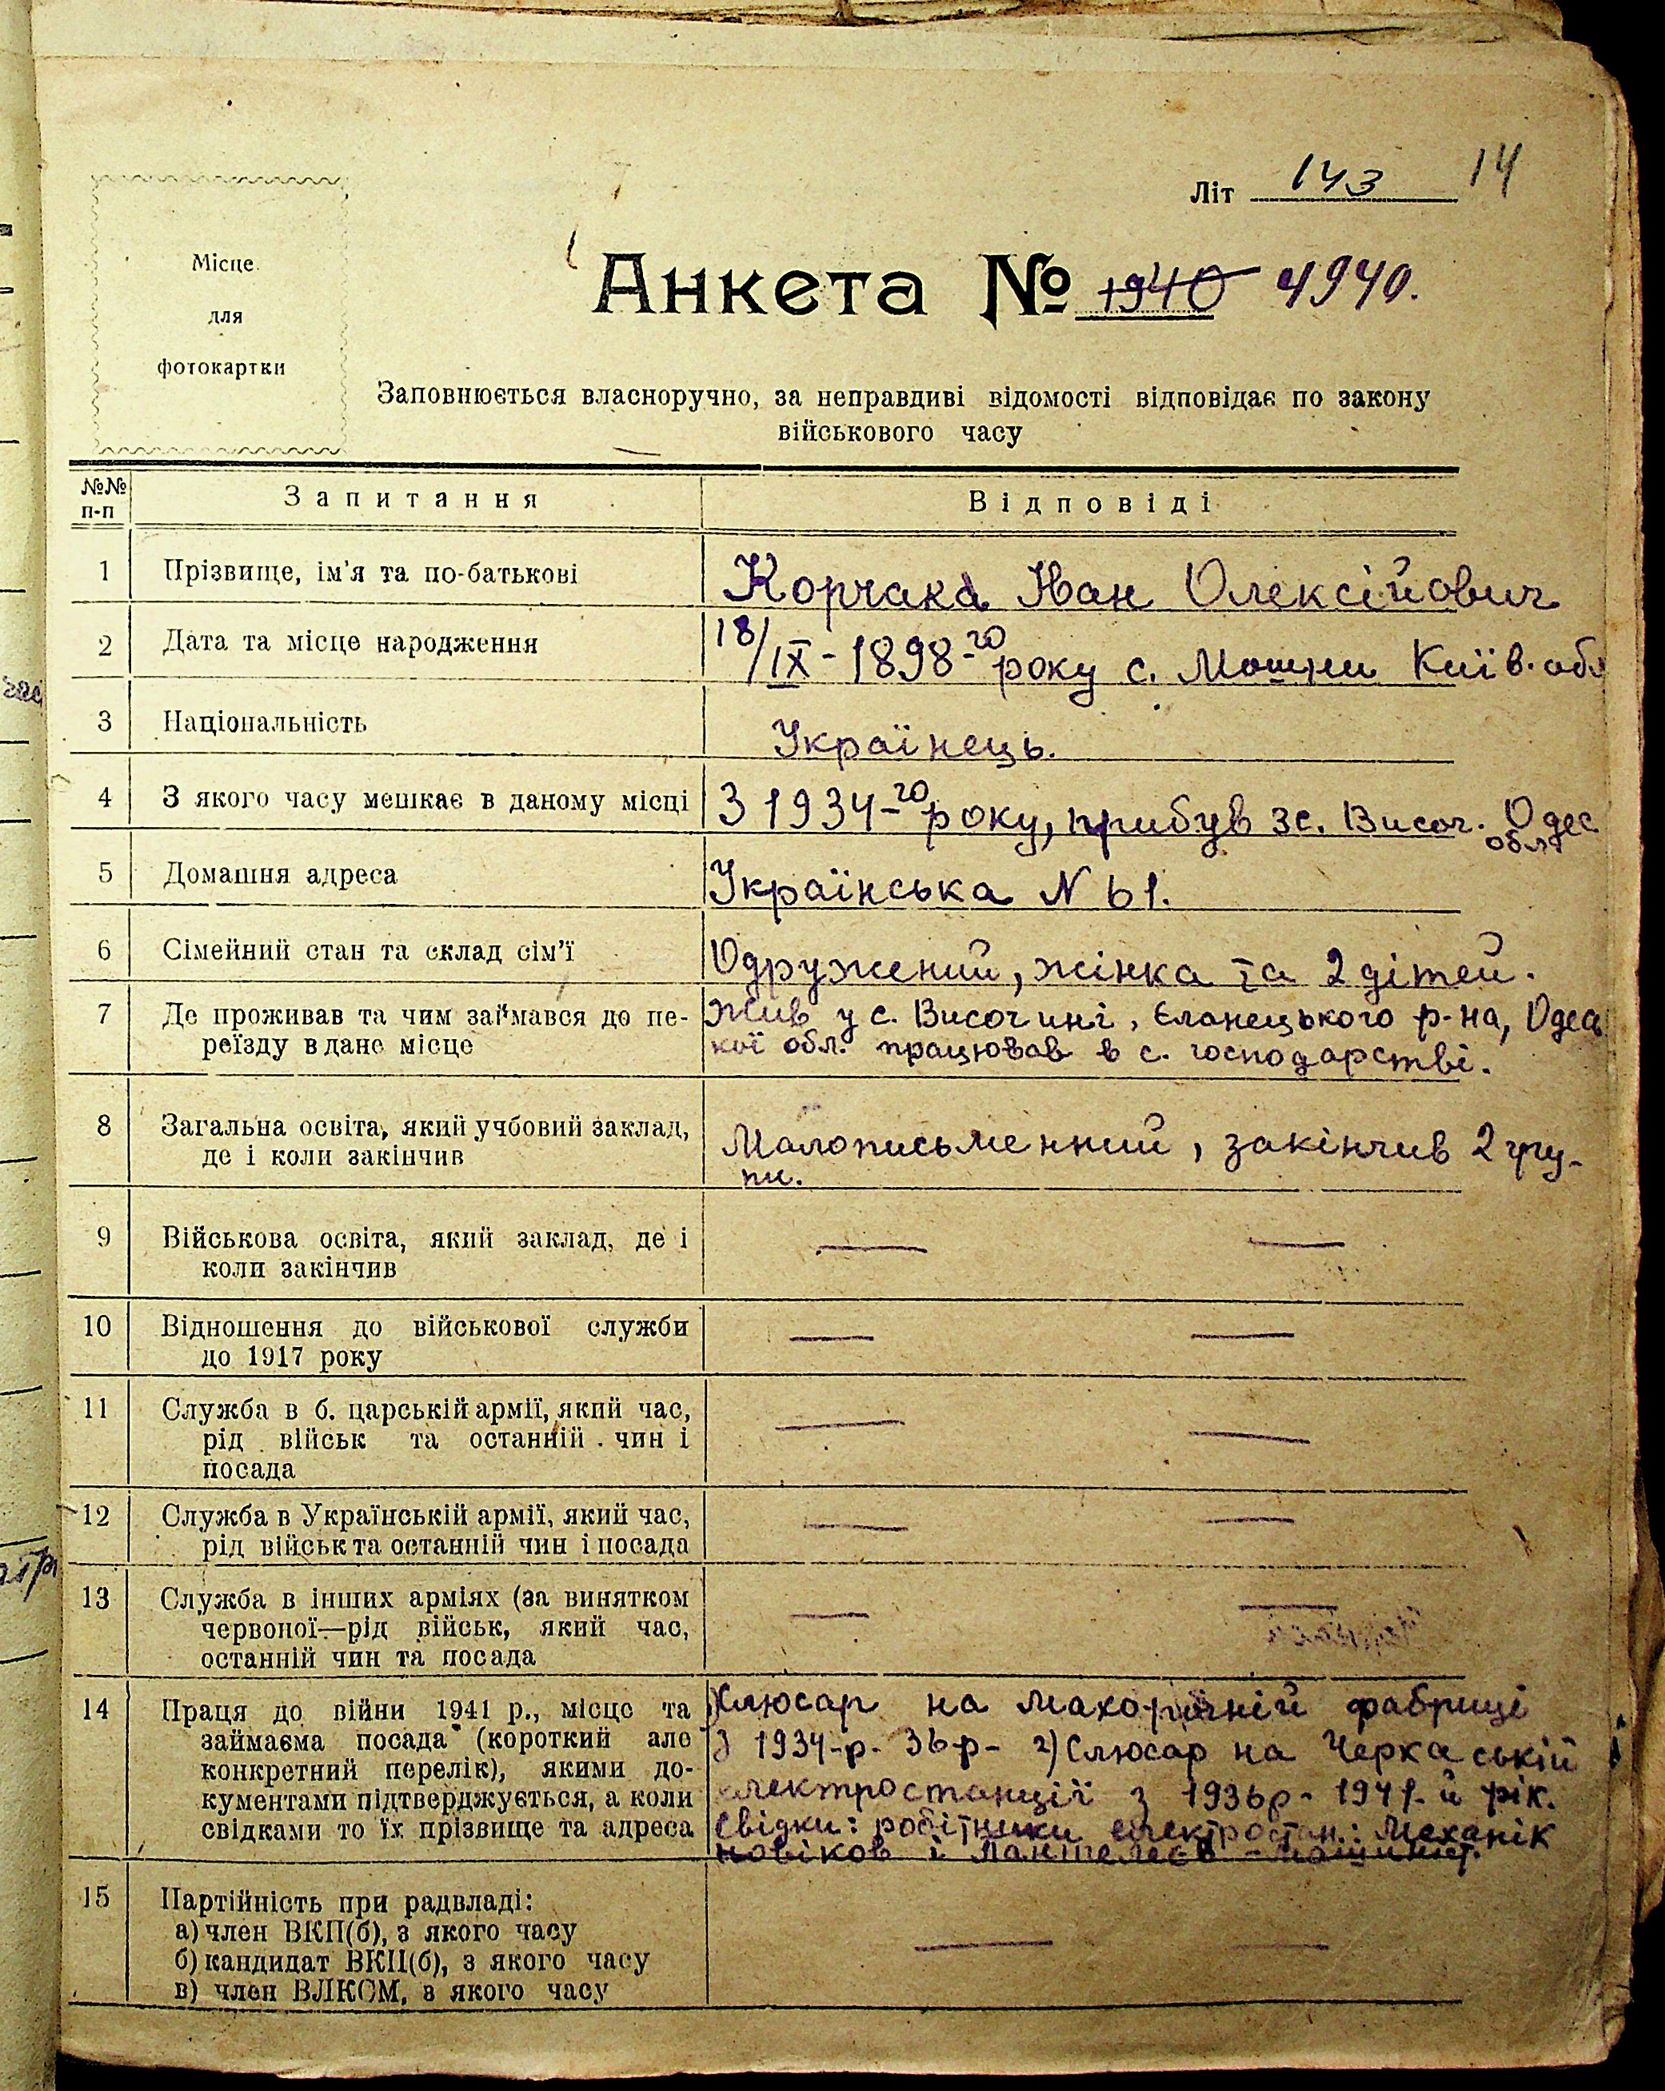 Літ 143 14
Місце
для
фотокартки
Анкета № 1940 4940.
Заповнюється власноручно, за неправдиві відомості відповідає по закону
військового часу
№№ п-п Запитання Відповіді
1 Прізвище, ім'я та по-батькові Корчака Іван Олексійович
2 Дата та місце народження 18/IX - 1898-го року с. Мошни Київ. обл
3 Національність Українець.
4 З якого часу мешкає в даному місці З 1934-го року, прибув з с. Височ. Одес
обл
5 Домашня адреса Українська N 61.
6 Сімейний стан та склад сім'ї Одружений, жінка та 2 дітей.
7 Де проживав та чим займався до пе- Жив у с. Височині, Єланецького р-на, Одесь
реїзду в дане місце кої обл. працював в с. господарстві.
8 Загальна освіта, який учбовий заклад, Малописьменний, закінчив 2 гру-
де і коли закінчив пи.
9 Військова освіта, який заклад, де і — —
коли закінчив
10 Відношення до військової служби — —
до 1917 року
11 Служба в б. царській армії, який час, — —
рід військ та останній чин і
посада
12 Служба в Українській армії, який час, — —
рід військ та останній чин і посада
13 Служба в інших арміях (за винятком — —
червоної—рід військ, який час,
останній чин та посада
14 Праця до війни 1941 р., місце та Слюсар на махорочній фабриці
займаєма посада (короткий але З 1934-р- 36р- 2) Слюсар на Черкаській
конкретний перелік), якими до- електростанції з 1936р- 1941-й рік.
кументами підтверджується, а коли Свідки: робітники електростан.: Механік
свідками то їх прізвище та адреса Новіков і Пантелеєв - машиніст.
15 Партійність при радвладі: — —
а) член ВКП(б), з якого часу
б) кандидат ВКП(б), з якого часу
в) член ВЛКСМ, з якого часу